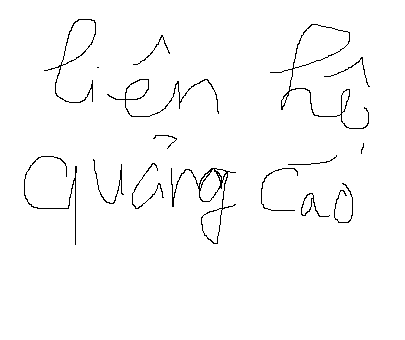 liên hệ
quảng cáo